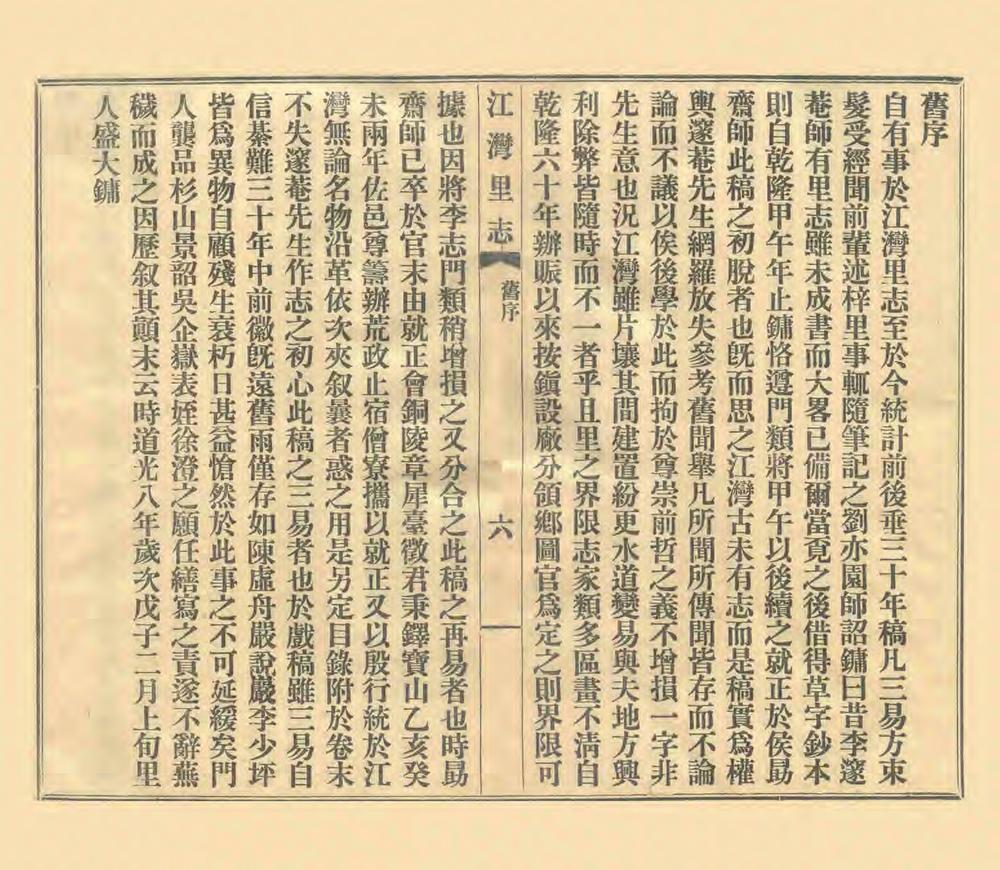 舊序
自有事於江灣里志至於今統計前後垂三十年稿凡三易方束
髮受經聞前輩述梓里事輒隨筆記之劉亦園師詔鏞曰昔李邃
菴師有里志雖未成書而大畧已備爾當覓之後借得草字鈔本
則自乾隆甲午年止鏞恪遵門類將甲午以後續之就正於侯勗
齋師此稿之初脫者也旣而思之江灣古未有志而是稿實爲權
輿邃菴先生網羅放失參考舊聞舉凡所聞所傳聞皆存而不論
論而不議以俟後學於此而拘於尊崇前哲之義不增損一字非
先生意也況江灣雖片壤其間建置紛更水道變易與夫地方興
利除弊皆隨時而不一者乎且里之界限志家類多區畫不淸自
乾隆六十年辦賑以來按鎭設廠分領鄉圖官爲定之則界限可
江灣里志 舊序 六
據也因將李志門類稍增損之又分合之此稿之再易者也時勗
齋師已卒於官末由就正會銅陵章犀臺徵君秉鐸寶山乙亥癸
未兩年佐邑尊籌辦荒政止宿僧寮攜以就正又以殷行統於江
灣無論名物沿革依次夾叙曩者惑之用是另定目錄附於卷末
不失邃菴先生作志之初心此稿之三易者也於戲稿雖三易自
信綦難三十年中前徽旣遠舊雨僅存如陳虛舟嚴說巖李少坪
皆爲異物自顧殘生衰朽日甚益愴然於此事之不可延緩矣門
人龔品杉山景韶吳企嶽表姪徐澄之願任繕寫之責遂不辭蕪
穢而成之因歷叙其顚末云時道光八年歲次戊子二月上旬里
人盛大鏞